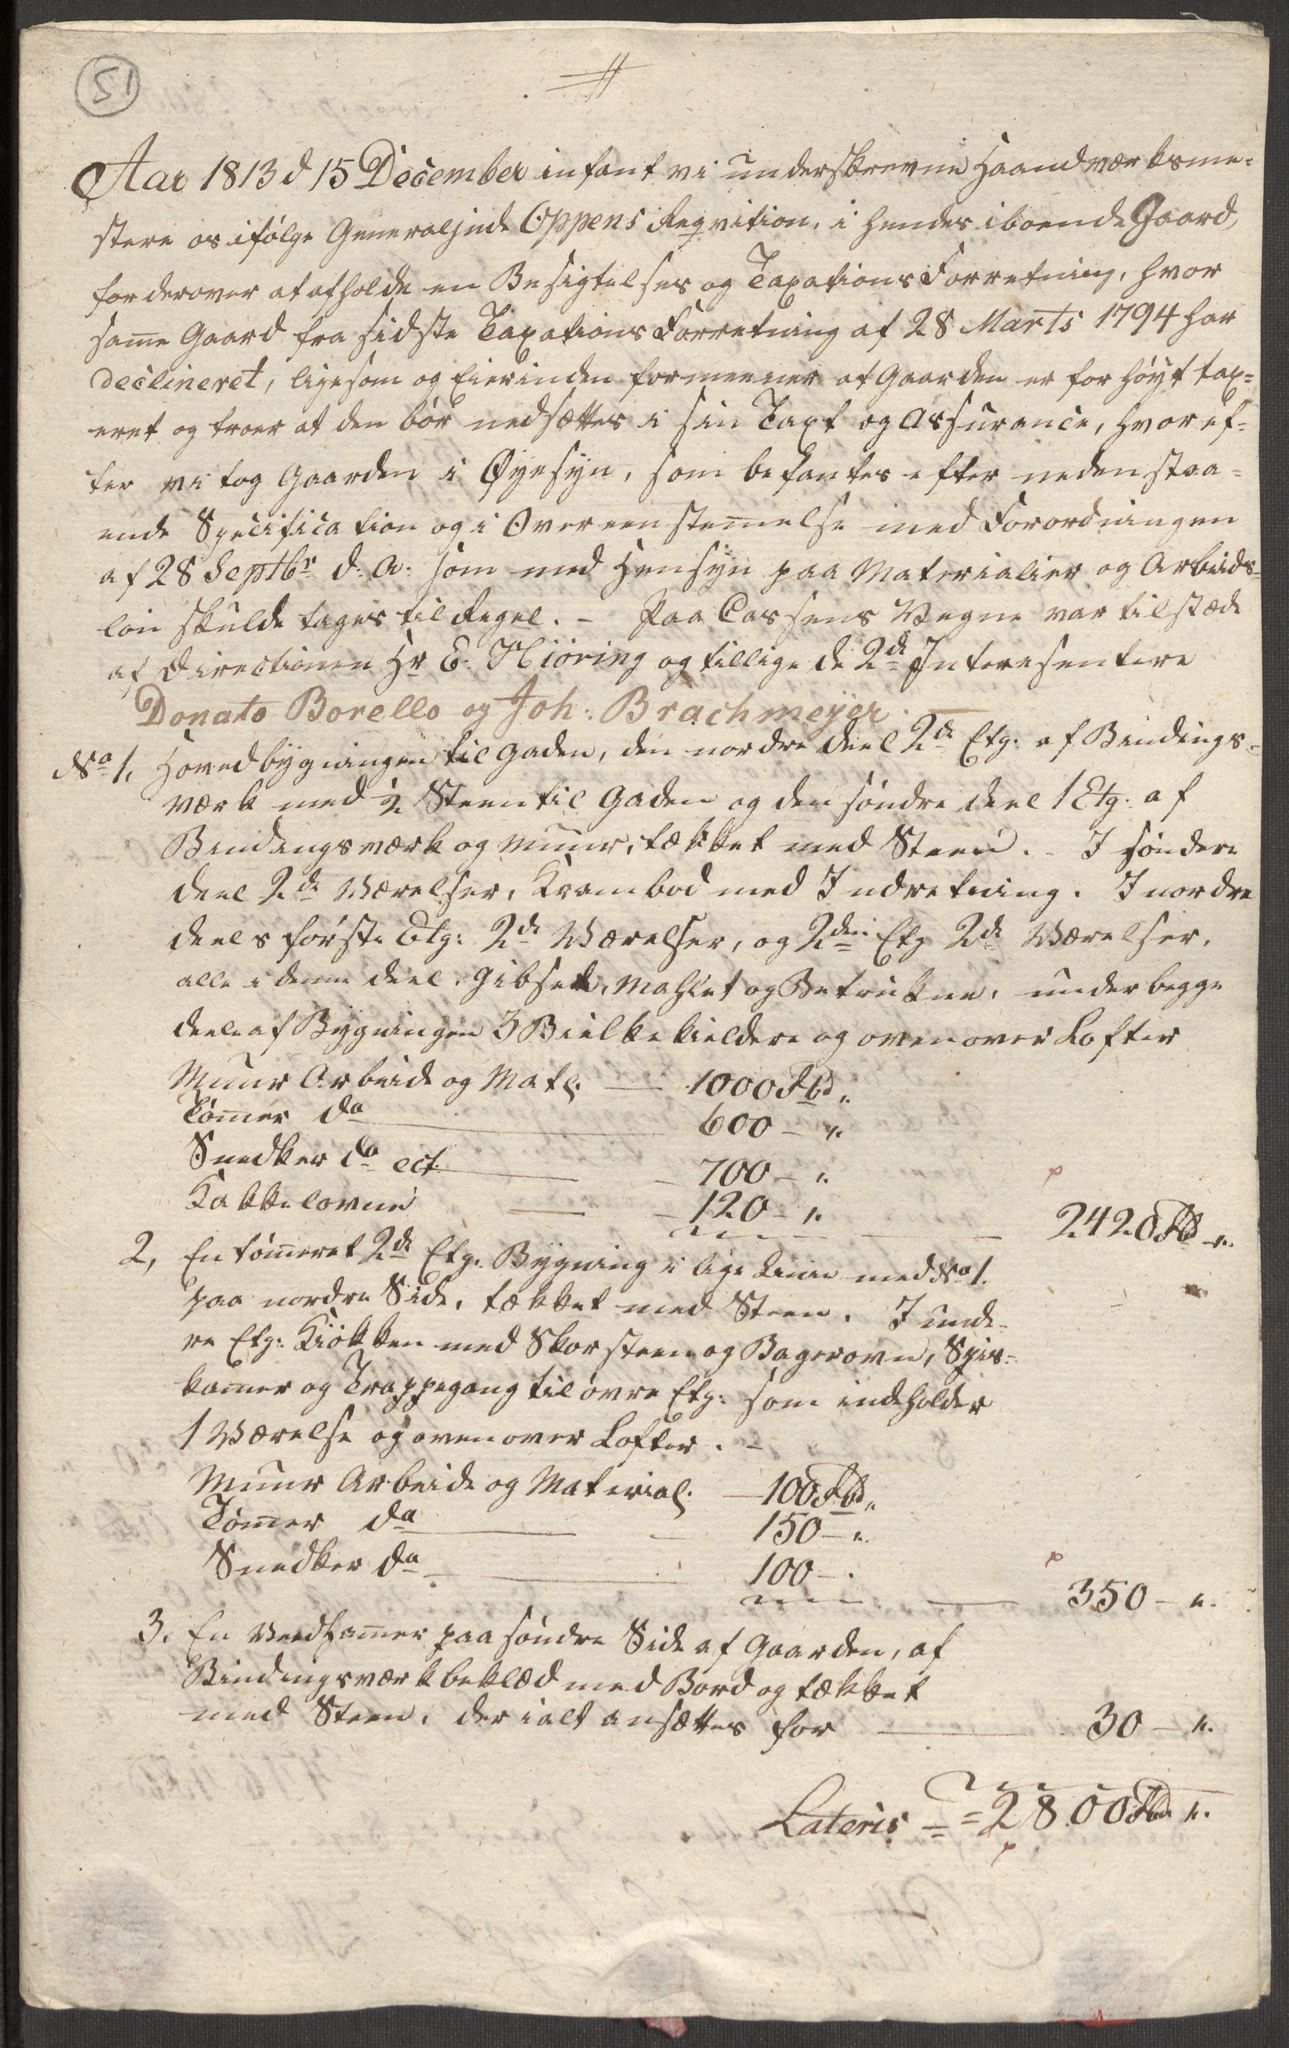 51
Aar 1813 d 15 December infant vi underskrevne Haandværksme-
stere os ifølge Generalinde Oppens Reqvition, i hendes iboende Gaard,
for derover at afholde en Besigtelses og Taxations Forretning, hvor
samme Gaard fra sidste Taxations Forretning af 28 Marts 1794 har
declineret, ligesom og Eierinden formeener at Gaarden er for høyt tax-
eret og troer at den bør nedsættes i sin Taxt og Assurance, hvoref-
ter vi tog Gaarden i Øyesyn, som befantes efter nedenstaa-
ende Specification og i Overeenstemelse med Forordningen
af 28 Septbr d: A: som med Hensyn paa Materialier og Arbeids-
løn skulde tages til Regel. - Paa Cassens Vegne var tilstæde
af Directionen Hr E. Hiøring og tillige de 2de Interesentere
Donato Borello og Joh: Brachmeyer.
No 1. Hovedbygningen til Gaden, den nordre deel 2de Etg: af Bindings-
værk med ½ Steen til Gaden og den søndre deel 1 Etg: af
Bindingsværk og Muur, tækket med Steen. - I søndere
deel 2de Værelser, Krambod med Indretning. I nordre
deels første Etg: 2de Værelser, og 2den Etg 2de Værelser,
alle i denne deel. Gibset, Mahlet og Betrukne. under begge
deele af Bygningen 3 Bielkekieldere og ovenover Lofter
Muur Arbeide og Matl. — 1000 Rbd „
Tømmer do — 600 — „
Snedker do ect. — 700 — „
Kakkelovne — 120 — „ — 2420 Rbd „
2, En tømmeret 2de Etg. Bygning i lige Linie med No 1.
paa nordre Side, tækket med Steen. I unde-
re Etg: Kiøkken med Skorsteen og Bagerovn, Spis-
kamer og Trappegang til øvre Etg: som indeholder
1 Værelse og ovenover Lofter. -
Muur Arbeide og Material. — 100 Rbd „
Tømmer do — 150 — „
Snedker do — 100 — . — 350 — „
3. En Vedhammer paa søndre Side af Gaarden, af
Bindingsværk beklæd med Bord og tækket
med Steen, der ialt ansættes for — 30 — „
Lateris = = 2800 Rbd „